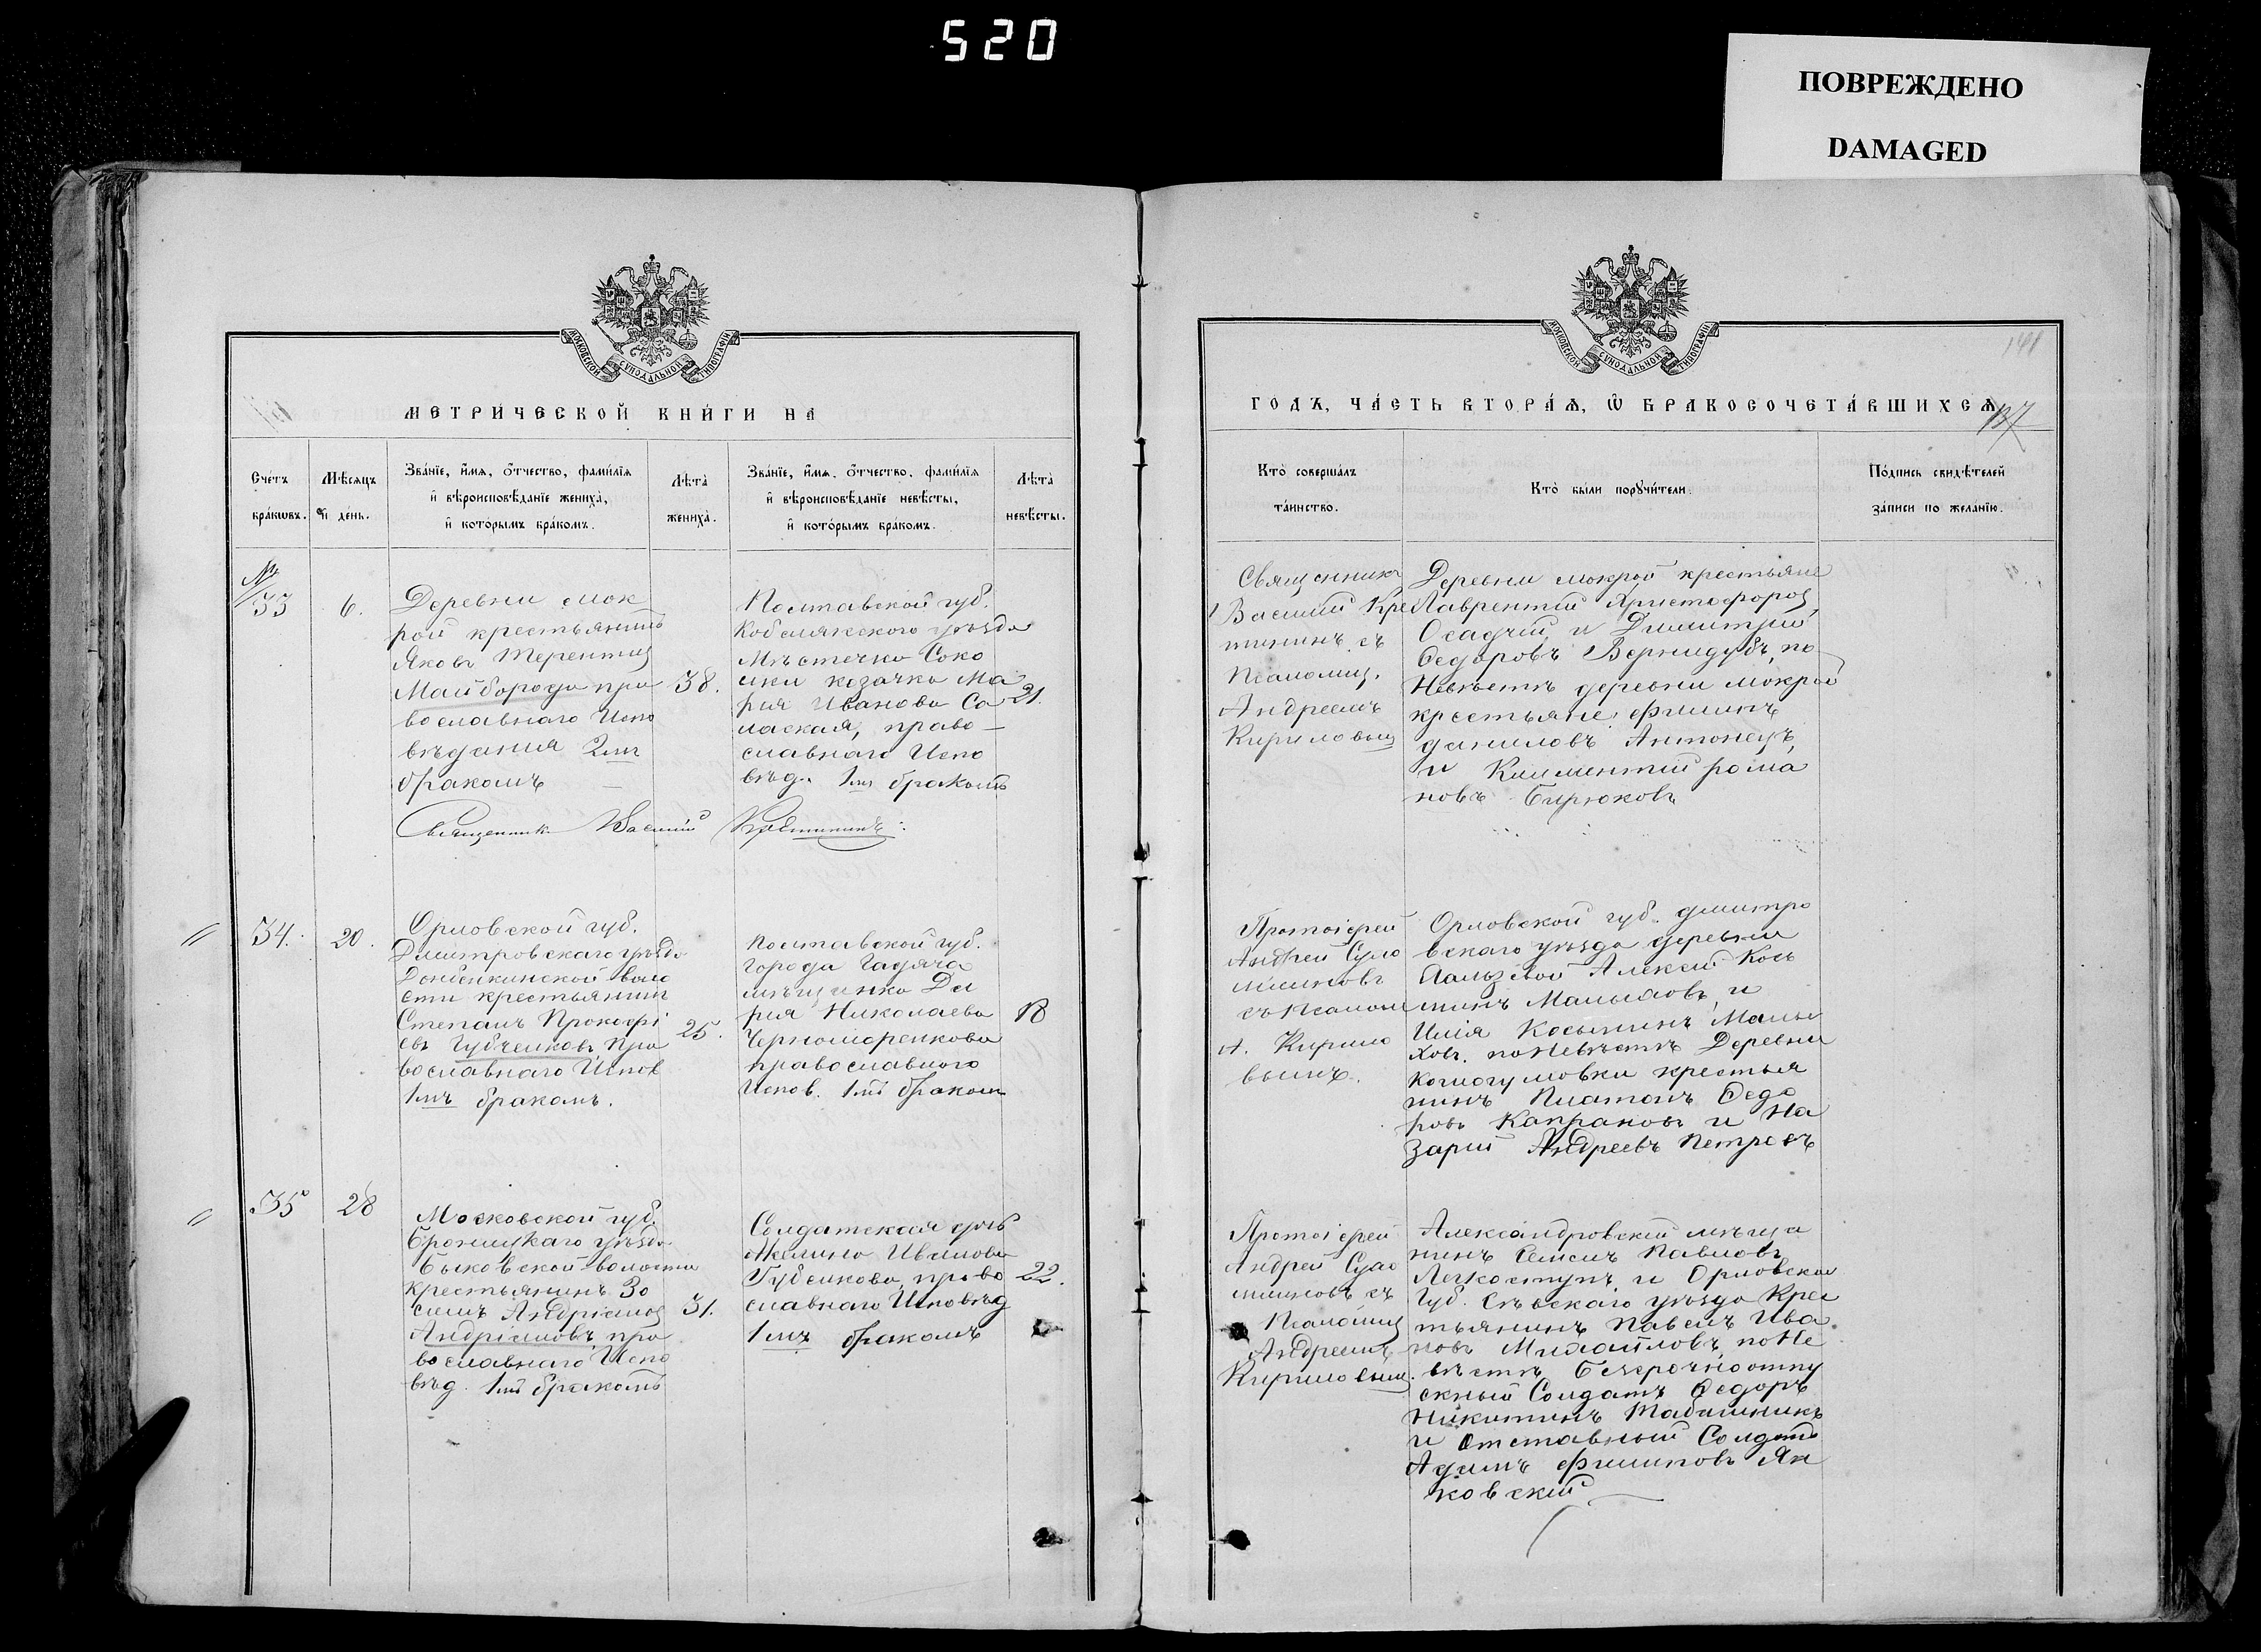 520
ПОВРЕЖДЕНО
DAMAGED
МОСКОВСКОЙ СѴНОДАЛЬНОЙ ТИПОГРАФІИ
МЕТРИ́ЧЕСКОЙ КНИ́ГИ НА
Сче́тъ
бра́кѡвъ.
Мѣ́сяцъ
и҆ де́нь.
Зва́нїе, и҆́мѧ, ѻ҆́тчество, фами́лїѧ
и҆ вѣроисповѣ́данїе жениха̀,
и҆ кото́рымъ бра́комъ.
Лѣта̀
жениха̀.
Зва́нїе, и҆́мѧ, ѻ҆́тчество, фами́лїѧ
и҆ вѣроисповѣ́данїе невѣ́сты,
и҆ кото́рымъ бра́комъ.
Лѣта̀
невѣ́сты.
№
33
6.
Деревни Мок
рой крестьянинъ
Яковъ Терентіе
Майборода пра
вославнаго Испо
вѣданія 2мъ
бракомъ
38.
Полтавской губ.
Кобелякского уѣзда
Мѣстечка Соко
лки козачка Ма
рія Иванова Са
лаская, право–
славнаго Испо
вѣд. 1мъ бракомъ
21.
Священникъ Василій Кретининъ.
34.
20.
Орловской губ.
Дмитровскаго уѣзда
воло
сти крестьянинъ
Степанъ Прокофі
евъ Губченковъ, пра
вославнаго Испов
1мъ бракомъ.
25.
Полтавской губ.
города Гадяча
мѣщанка Да
рія Николаева
Черноморенкова
православного
Испов. 1мъ бракомъ
18
35
28
Московской губ.
Бронницкаго уѣзда
Быковской волости
крестьянинъ Зо
симъ Андріанов
Андріановъ, пра
вославнаго Испо
вѣд. 1мъ бракомъ
31.
Солдатская дочь
Акелина Иванова
Губенкова, право
славнаго Исповѣд
1мъ бракомъ
22.
МОСКОВСКОЙ СѴНОДАЛЬНОЙ ТИПОГРАФІИ
141
ГОДЪ, ЧА́СТЬ ВТОРА́Ѧ, Ѽ БРАКОСОЧЕТА́ВШИХСѦ
137
Кто̀ соверша́лъ
та́инство.
Кто̀ бы́ли порꙋчи́тели.
По́дпись свидѣ́телей
за́писи по жела́нїю.
Священникъ
Василій Кре
тининъ съ
Псаломщ.
Андреемъ
Кириловым
Деревни мокрой крестьяне
Лаврентій Христофоров
Осадчій и Димитрій
Федоровъ Вернидубъ, по
Невѣстѣ деревни мокрой
крестьяне: Филипъ
даниловъ Антонецъ,
и Климентій рома
новъ Бирюковъ
Протоіерей
Андрей Суло
съ Псалом
А. Кирило
вымъ.
Орловской губ. дмитро
вскаго уѣзда деревни
Алексѣй Кось
минъ Малыховъ, и
Илія Косьминъ Малы
ховъ. по Невѣстѣ Деревни
крестья
нинъ Платонъ Федо
ровъ Капрановъ и На
зарій Андреевъ Петровъ
Протоіерей
Андрей Суло
съ
Псаломщ
Андреемъ
Кириловым.
Александровскій мѣща
нинъ Семенъ Павловъ
Легкоступъ и Орловской
Губ. Сѣвскаго уѣзда Крес
тьянинъ Павелъ Ива
новъ Михайловъ, по Не
вѣстѣ Безсрочноотпу
скный Солдатъ Федоръ
Никитинъ Табашникъ
и Отставный Солдатъ
Адамъ Филиповъ Ян
ковскій